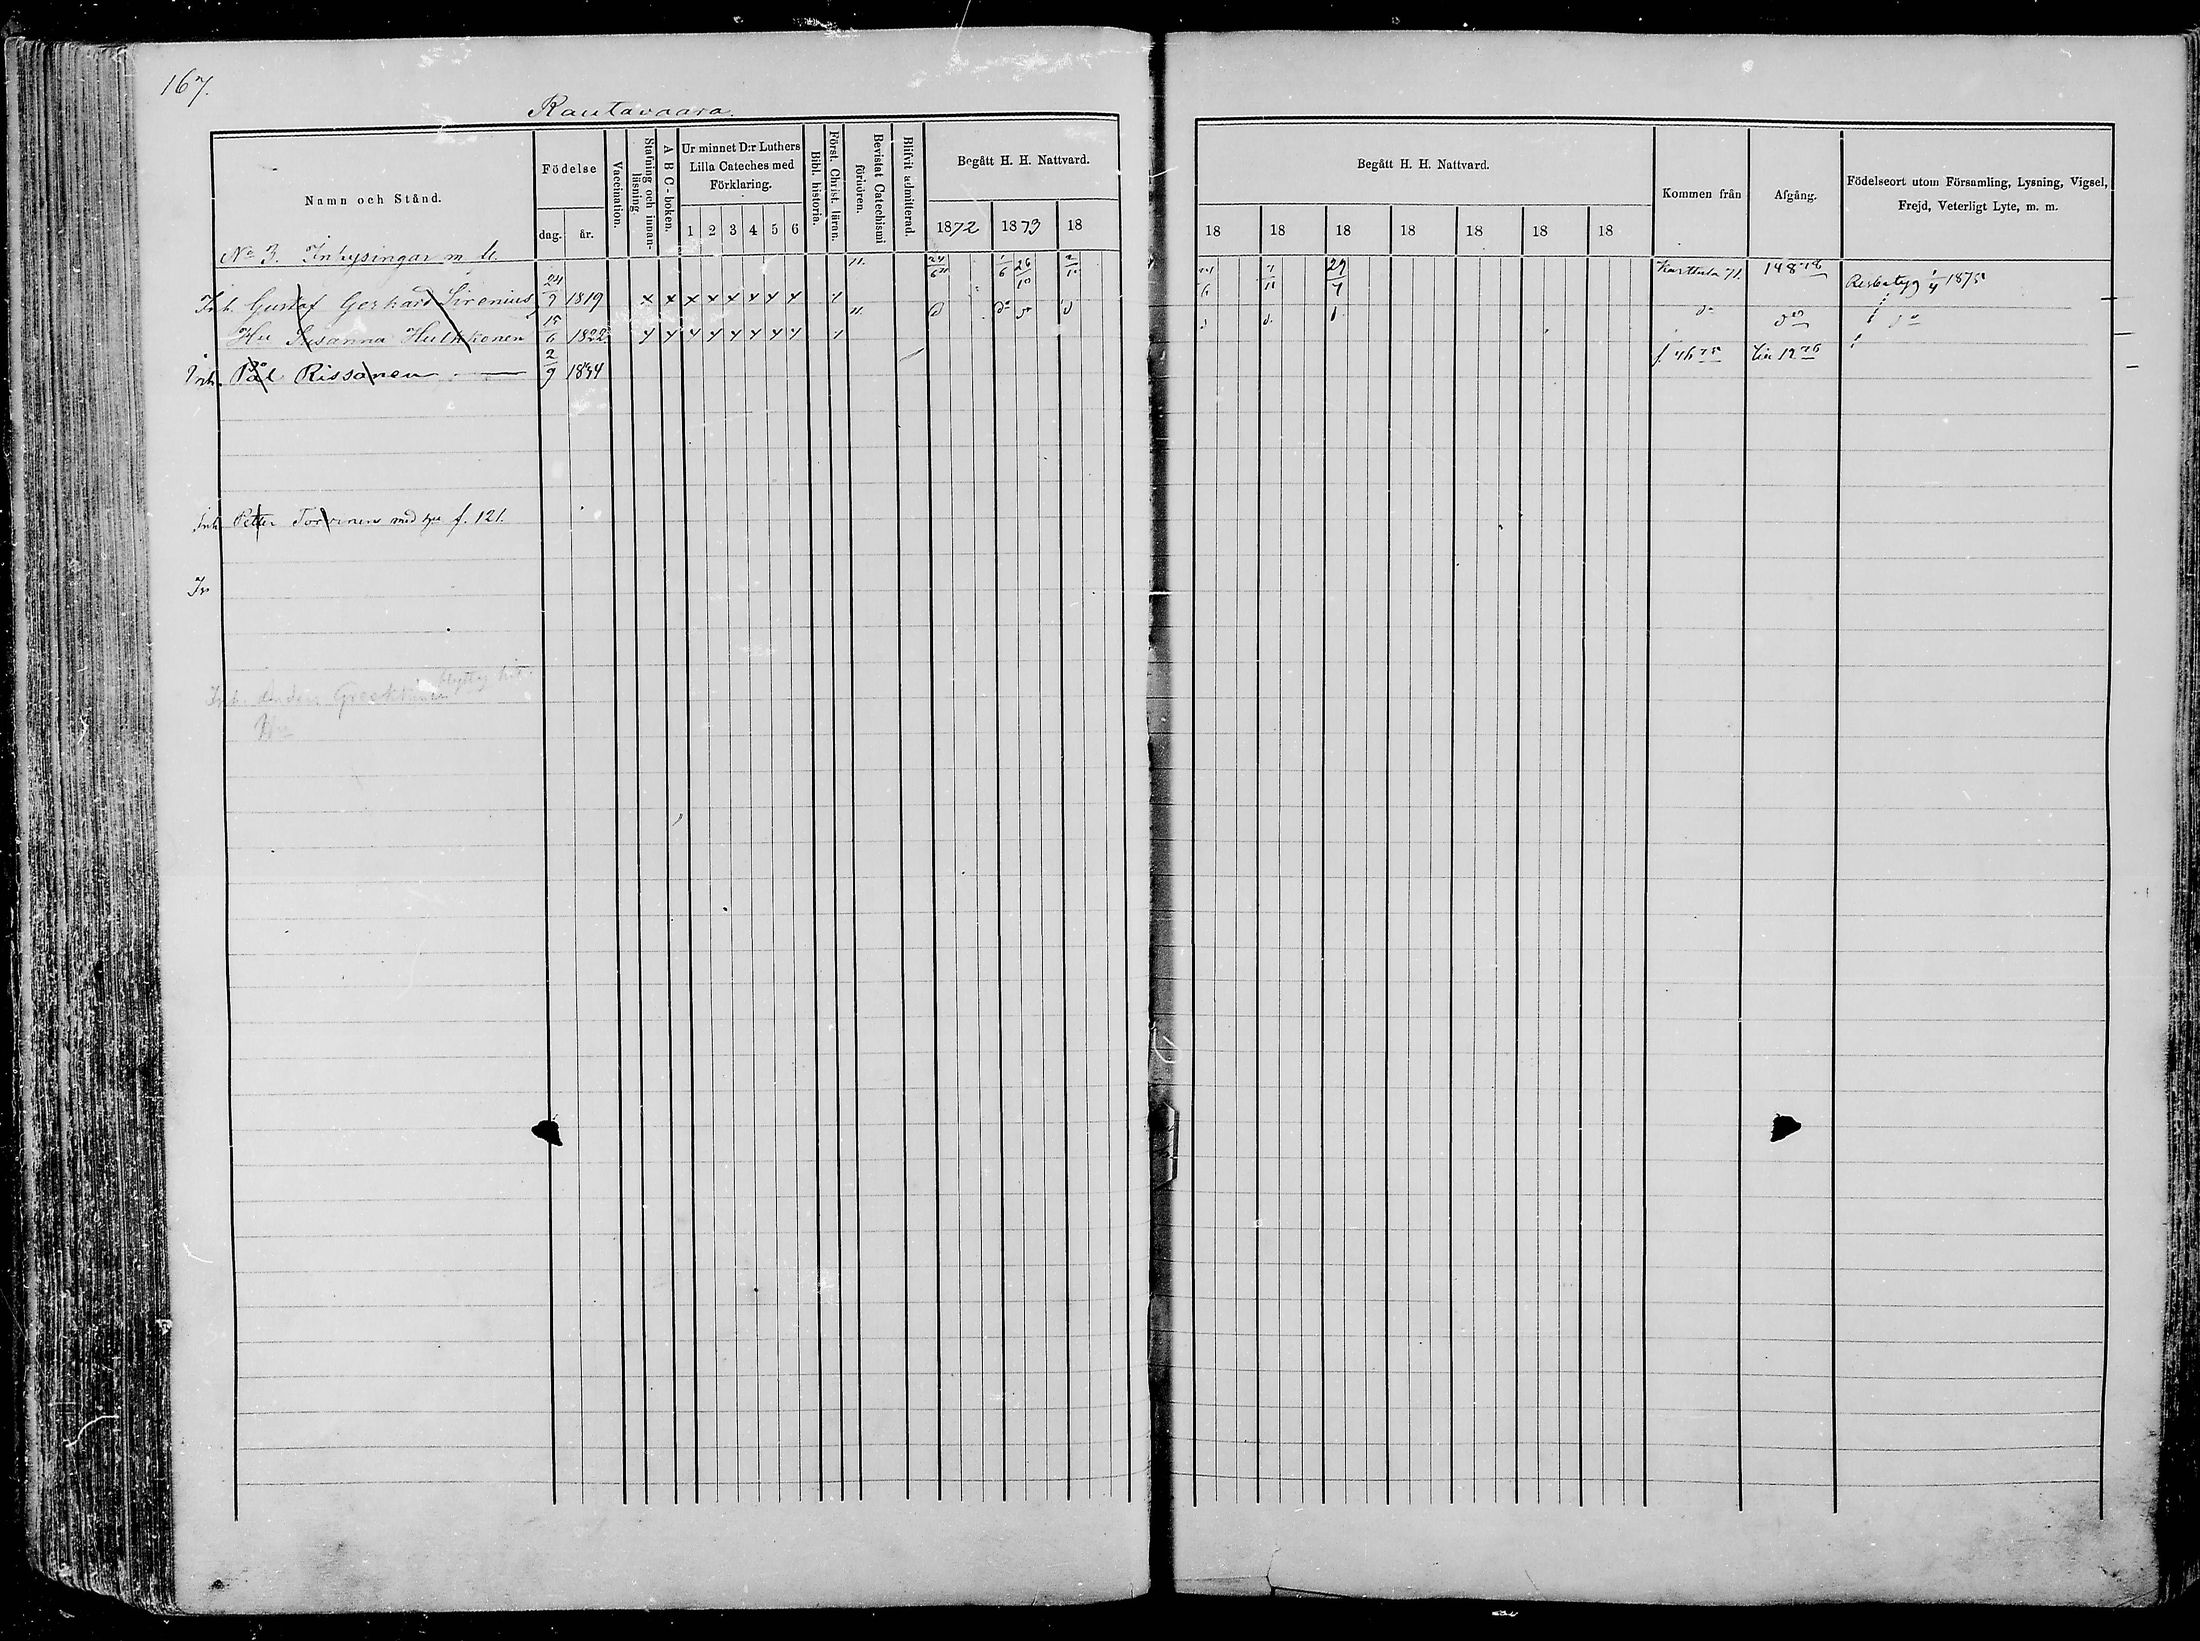 167.
Rautavaara.
Namn och Stånd.
Födelse
dag. år.
Vaccination.
Stafning och innan-läsning
A B C-boken.
Ur minnet D:r Luthers Lilla Cateches med Förklaring.
1 2 3 4 5 6
Bibl. historia.
Först. Christ. läran.
Bevistat Catechismi förhören.
Blifvit admitterad.
Begått H. H. Nattvard.
1872 1873 18
Begått H. H. Nattvard.
18 18 18 18 18 18 18
Kommen från
Afgång.
Födelseort utom Församling, Lysning, Vigsel, Frejd, Veterligt Lyte, m. m.
No 3. Inhysingar m fl.
Inh. Gustaf Gerhard Sirenius 24/9 1819 x x x x x x x x 24/6 1/6 26/10 7/11 29/7 Karttula 71. 148 Resbetyg 1/4 1875
Hu Susanna Hulkkonen 15/6 1822 d do
Inh. Pål Rissanen 2/9 1834 f. 76 75
Inh. Petter Torvinen med hu f. 121.
In
flyttig hit.
Inh. Anders
Hu